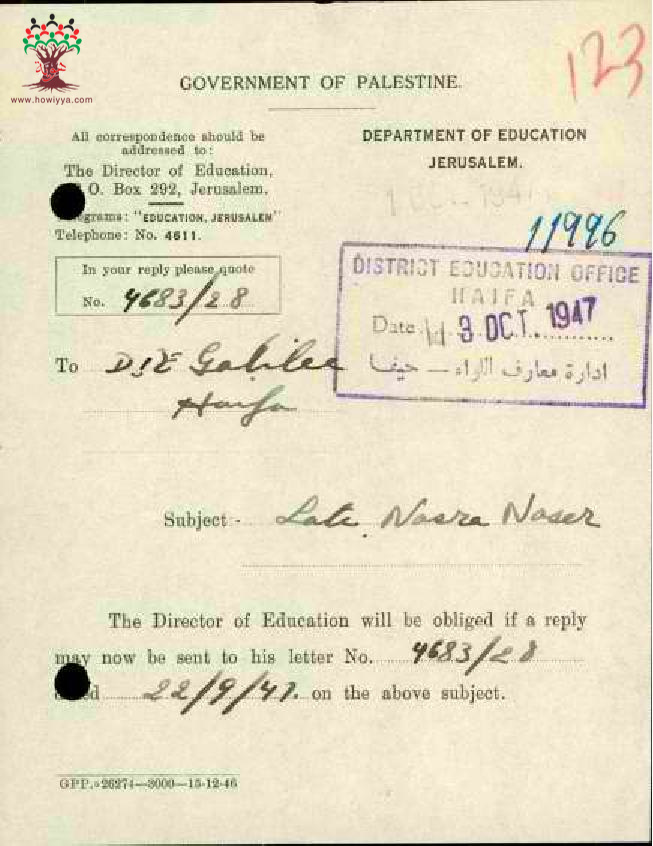 www.howiyya.com
123
GOVERNMENT OF PALESTINE.
All correspondence should be
addressed to:
The Director of Education,
O. Box 292, Jerusalem.
grams: "EDUCATION, JERUSALEM"
Telephone: No. 4611.
DEPARTMENT OF EDUCATION
JERUSALEM.
1 OCT. 1947
11996
In your reply please quote
No. 4683/28
DISTRICT EDUCATION OFFICE
HAIFA
Date 3 OCT. 1947
ادارة معارف اللواء — حيفا
To D.I.E Galilee
Haifa
Subject - Late Nasra Naser
The Director of Education will be obliged if a reply
may now be sent to his letter No. 4683/28
ed 22/9/47. on the above subject.
GPP. 26274—3000—15-12-46